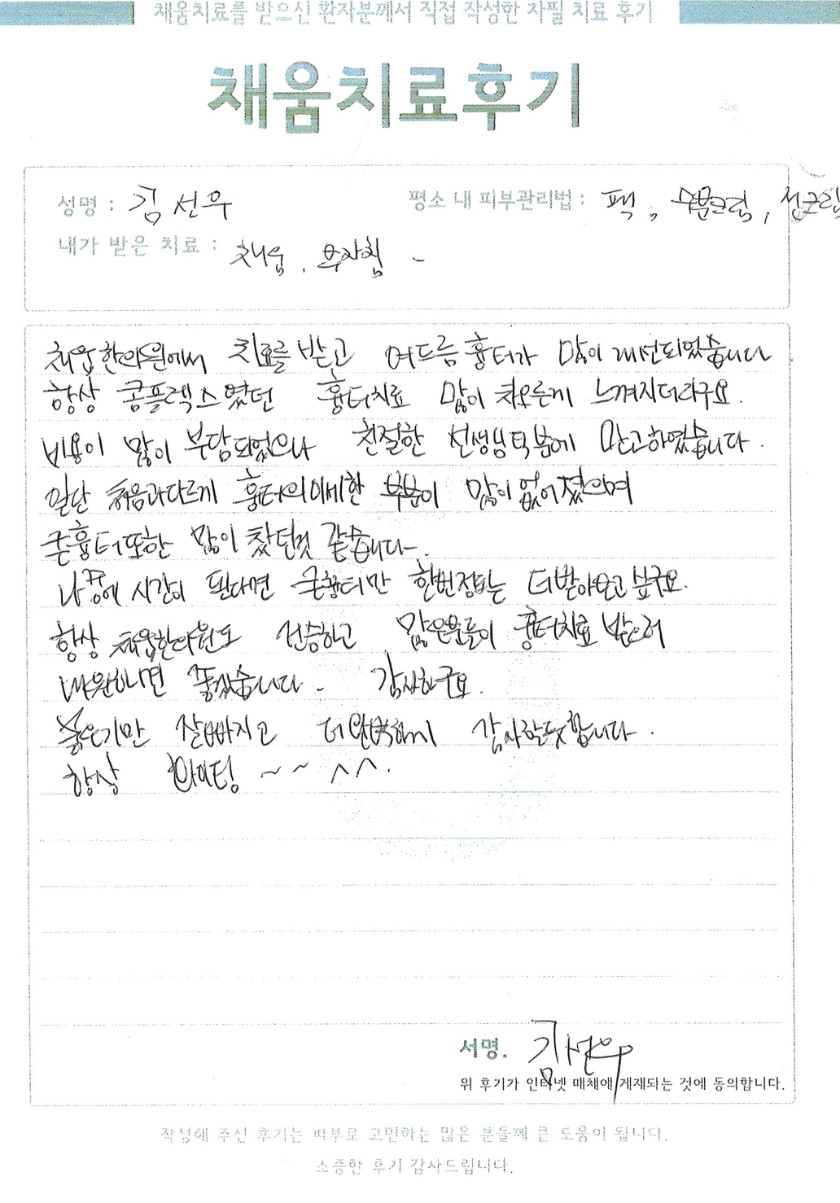 채움치료를 받으신 환자분께서 직접 작성한 자필 치료 후기
채움치료후기
성명 : 김선우
평소 내 피부관리법 : 팩, 수분크림, 선크림
내가 받은 치료 : 채움, 부자침
채움한의원에서 치료를 받고 여드름흉터가 많이 개선되었습니다
항상 콤플렉스였던 흉터치료 많이 차오른게 느껴지더라구요.
비용이 많이 부담되었으나 친절한 선생님덕분에 만족하였습니다.
일단 처음과다르게 흉터의미세한 부분이 많이없어졌으며
큰흉터또한 많이 찼던것 같습니다.
나중에 시간이 된다면 큰흉터만 한번정도는 더받아보고싶구요.
항상 채움한의원도 번창하고 많은분들이 흉터치료 받으러
내원하시면 좋겠습니다. 감사하구요.
붉은기만 잘빠지고 더완벽하게 감사할듯합니다.
항상 화이팅 ~ ~ ^^.
서명. 김선우
위 후기가 인터넷 매체에 게재되는 것에 동의합니다.
작성해 주신 후기는 피부로 고민하는 많은 분들께 큰 도움이 됩니다.
소중한 후기 감사드립니다.